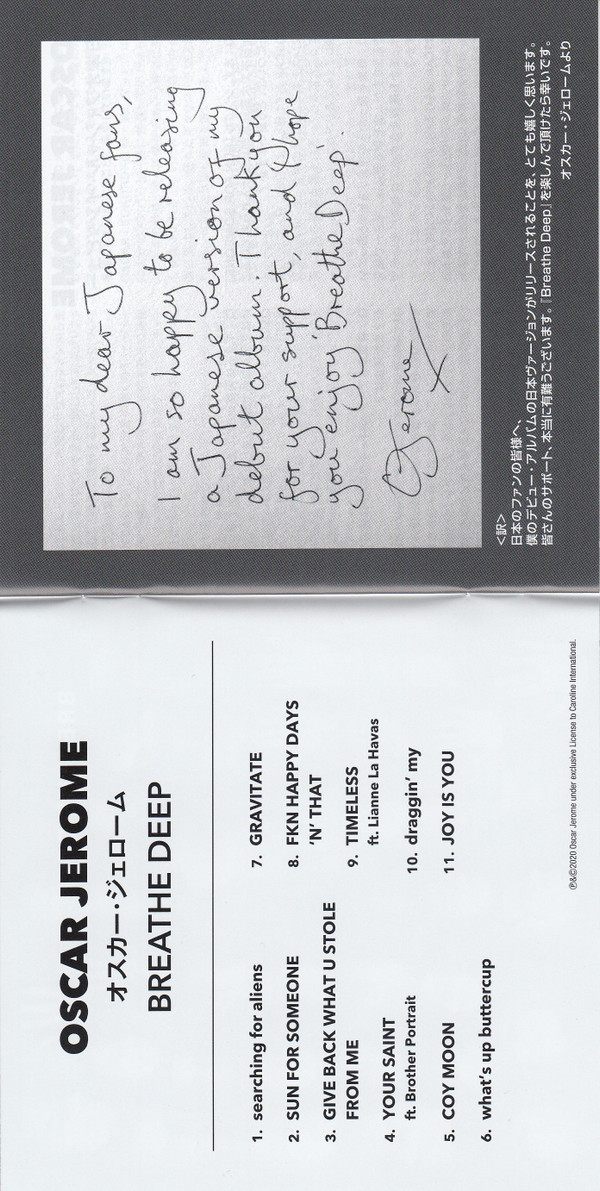 OSCAR JEROME
オスカー・ジェローム
BREATHE DEEP
1. searching for aliens
2. SUN FOR SOMEONE
3. GIVE BACK WHAT U STOLE
FROM ME
4. YOUR SAINT
ft. Brother Portrait
5. COY MOON
6. what's up buttercup
7. GRAVITATE
8. FKN HAPPY DAYS
'N' THAT
9. TIMELESS
ft. Lianne La Havas
10. draggin' my
11. JOY IS YOU
℗&©2020 Oscar Jerome under exclusive License to Caroline International.
To my dear Japanese fans,
I am so happy to be releasing
a Japanese version of my
debut album. Thank you
for your support, and I hope
you enjoy 'Breathe Deep'.
OJerome X
<訳>
日本のファンの皆様へ、
僕のデビュー・アルバムの日本ヴァージョンがリリースされることを、とても嬉しく思います。
皆さんのサポート、本当に有難うございます。『Breathe Deep』を楽しんで頂けたら幸いです。
オスカー・ジェロームより